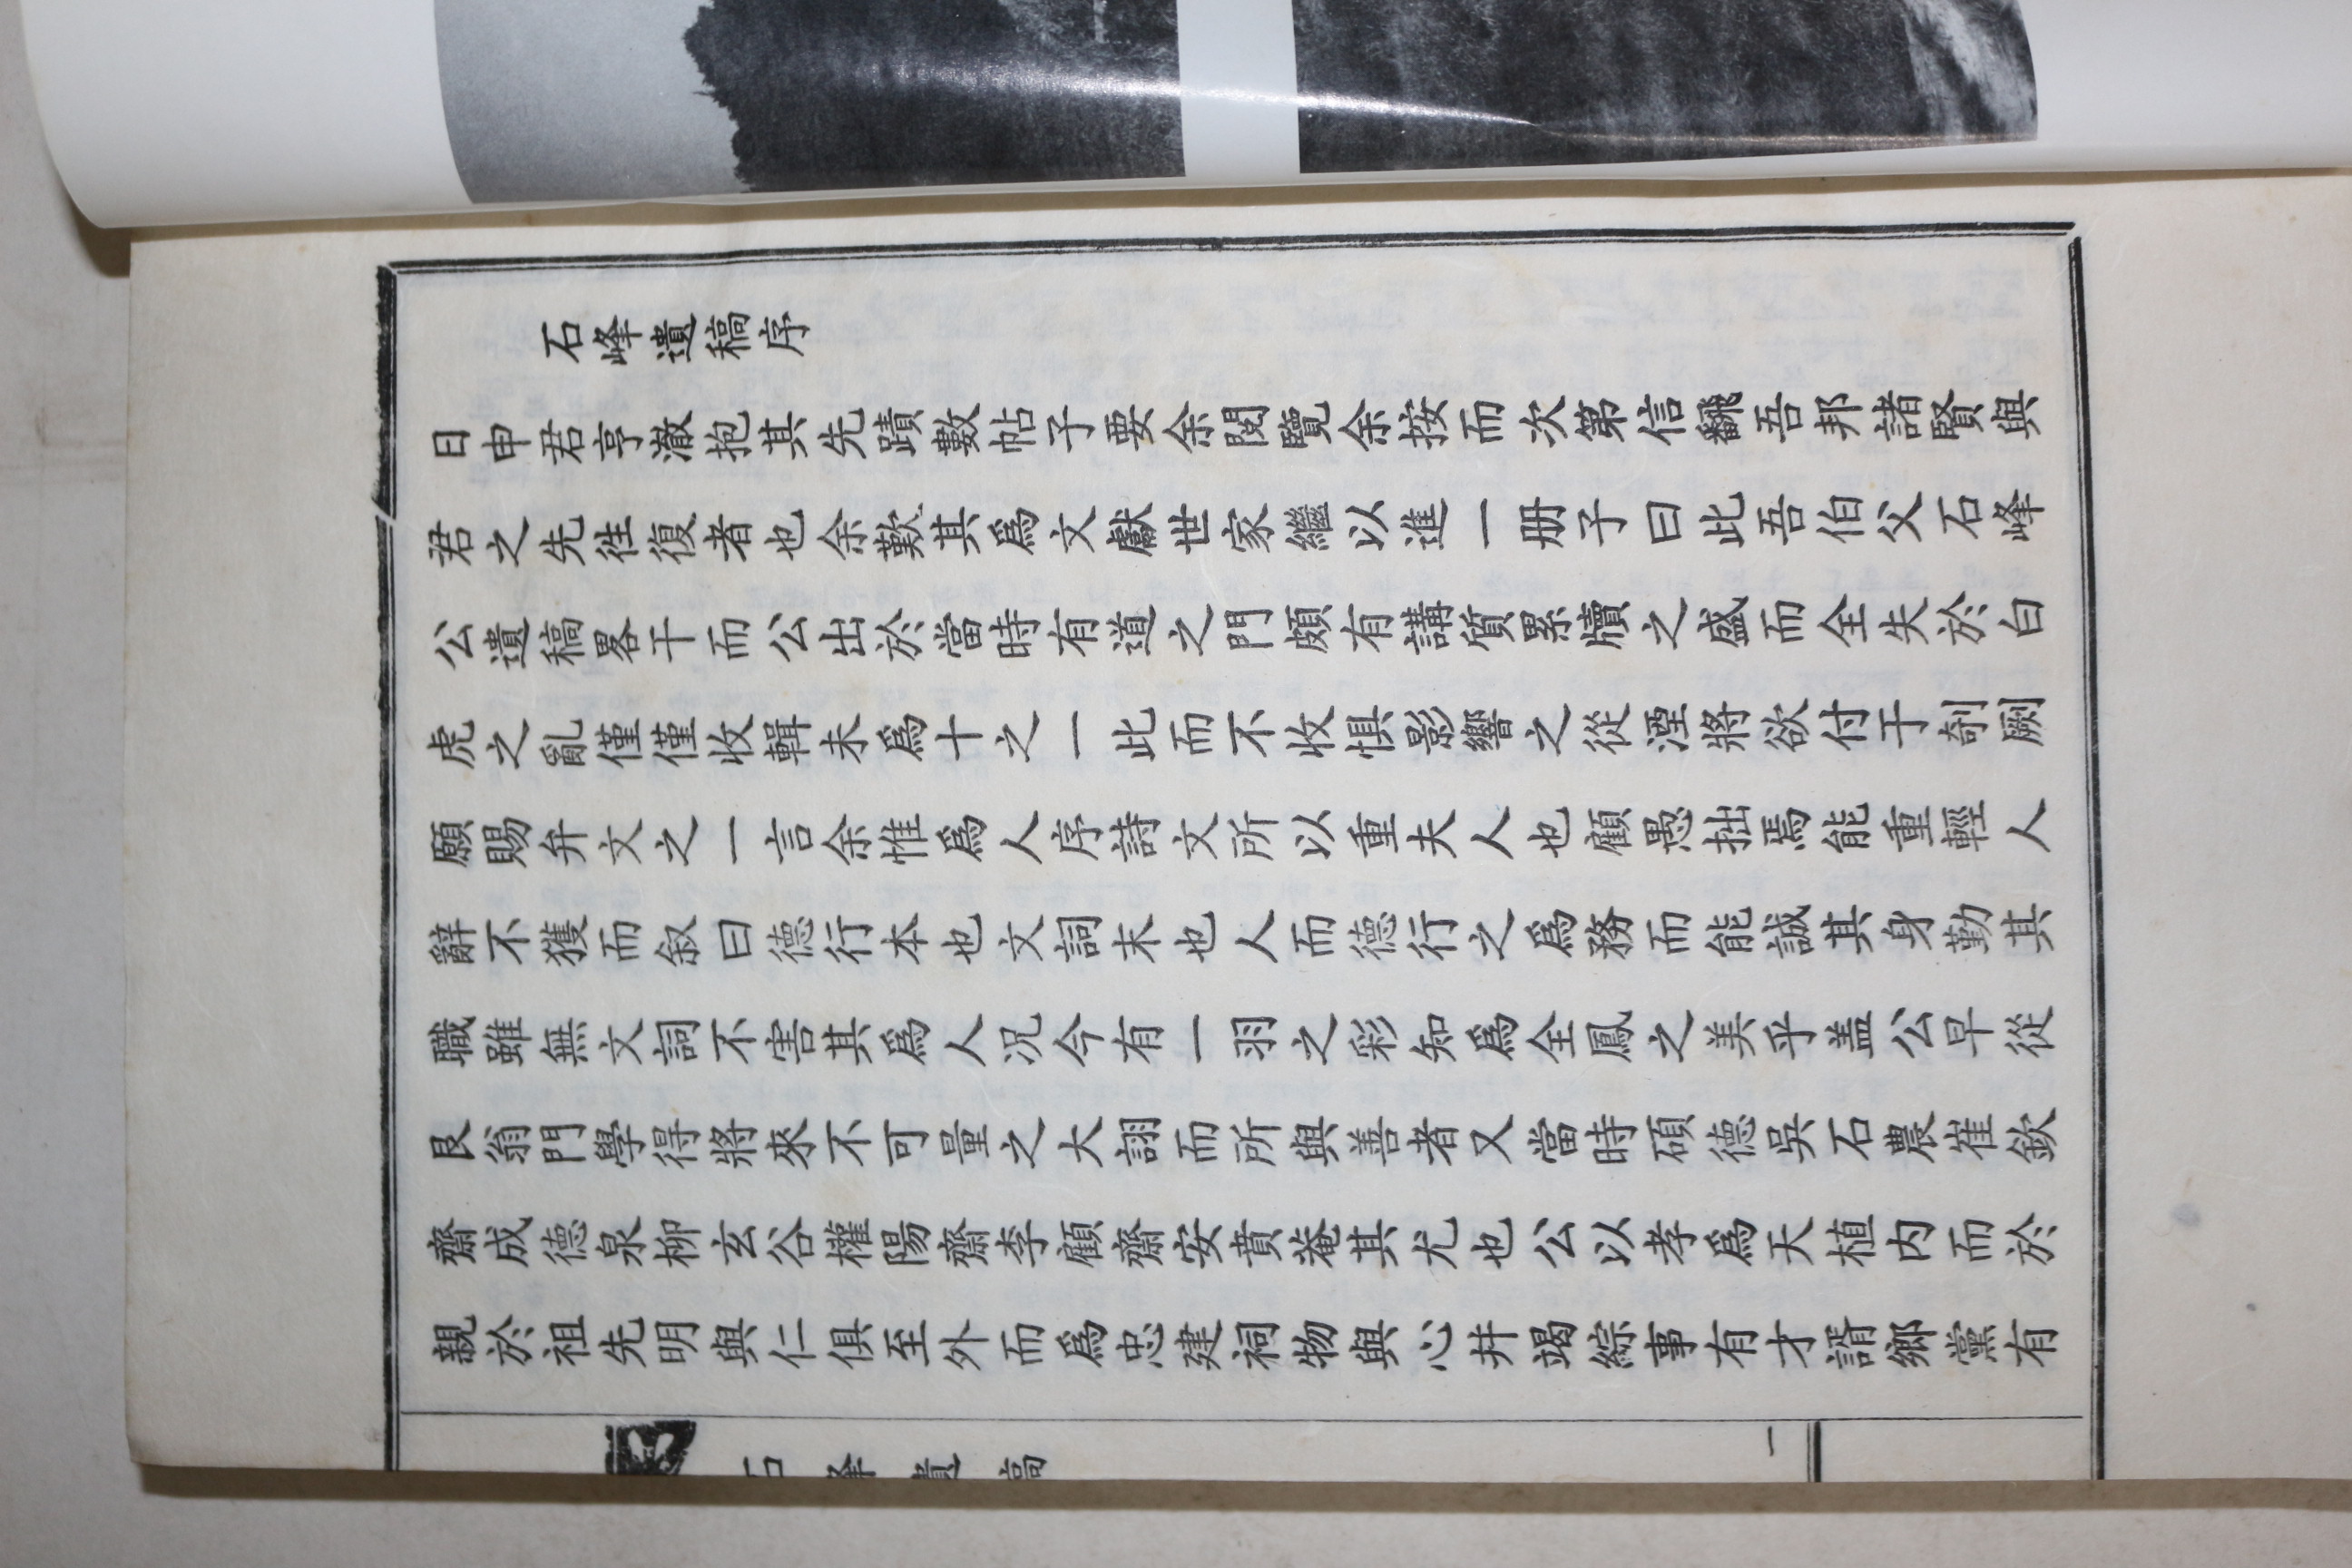 石峰遺稿序
日申君亨澈抱其先蹟數帖子要余閱覽余按而次第信飜吾邦諸賢與
君之先徃復者也余歎其爲文獻世家繼以進一册子曰此吾伯父石峰
公遺稿畧干而公出於當時有道之門頗有講質累牘之盛而全失於白
虎之亂僅僅收輯未爲十之一此而不收惧影響之從湮將欲付于剞劂
願賜弁文之一言余惟爲人序詩文所以重夫人也顧愚拙焉能重輕人
辭不獲而叙曰德行本也文詞末也人而德行之爲務而能誠其身勤其
職雖無文詞不害其爲人况今有一羽之彩知爲全鳳之美乎盖公早從
艮翁門學得將來不可量之大詡而所與善者又當時碩德吳石農崔欽
齋成德泉柳玄谷權陽齋李顧齋安賁菴其尤也公以孝爲天植内而於
親於祖先明與仁俱至外而爲忠建祠物與心并竭綜事有才諝鄉黨有
石峰遺稿
一